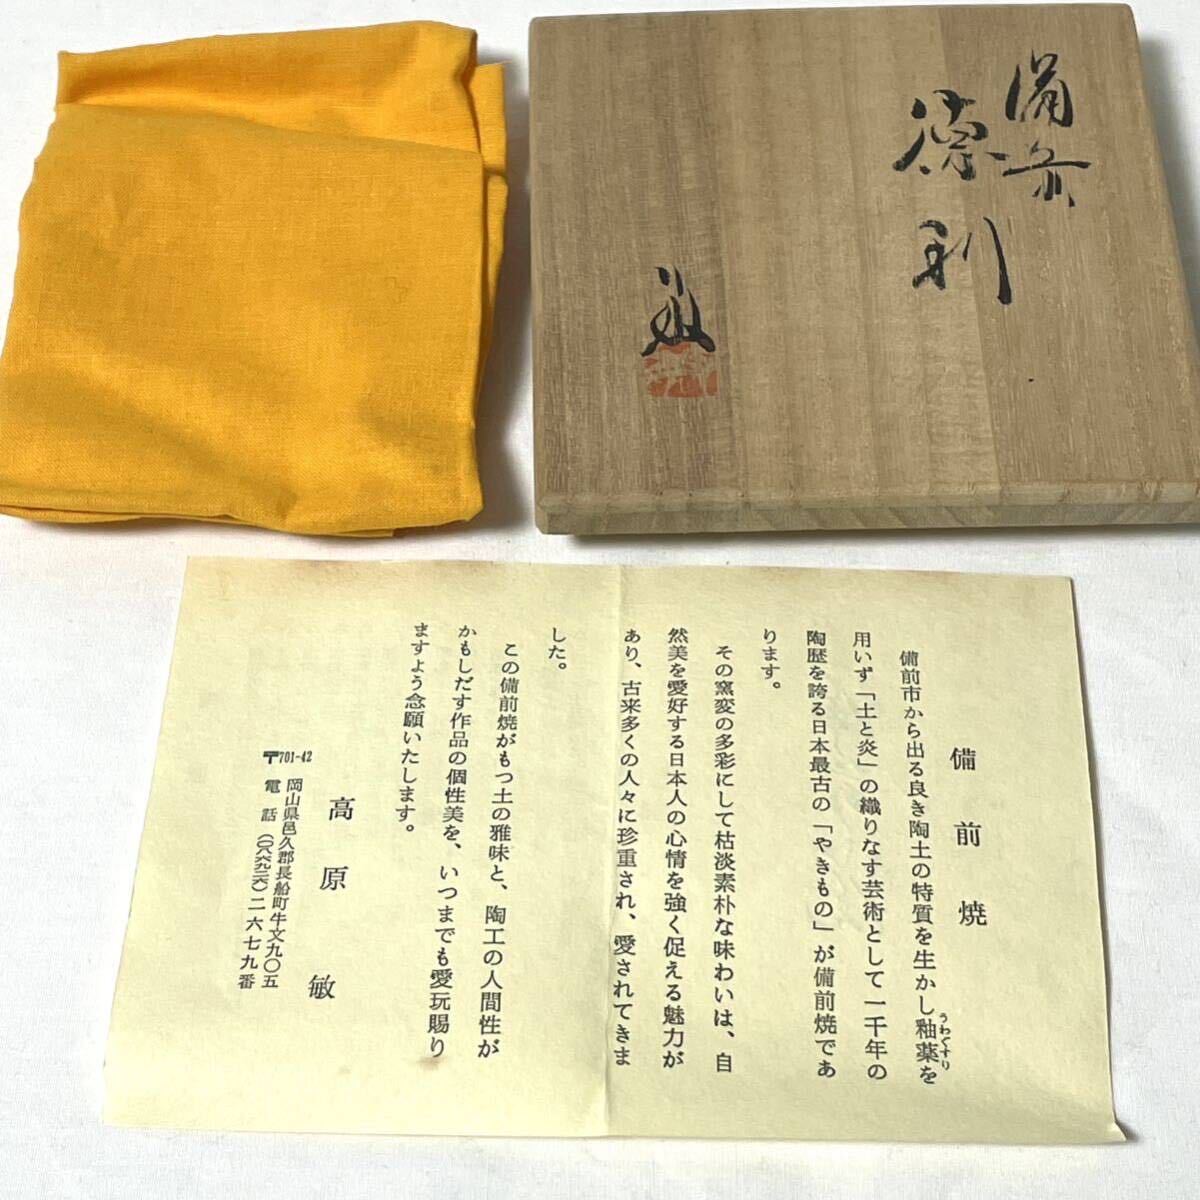 備前
徳利
敏
備前焼
備前市から出る良き陶土の特質を生かし釉薬を
うわぐすり
用いず「土と炎」の織りなす芸術として一千年の
陶歴を誇る日本最古の「やきもの」が備前焼であ
ります。
その窯変の多彩にして枯淡素朴な味わいは、自
然美を愛好する日本人の心情を強く促える魅力が
あり、古来多くの人々に珍重され、愛されてきま
した。
この備前焼がもつ土の雅味と、陶工の人間性が
かもしだす作品の個性美を、いつまでも愛玩賜り
ますよう念願いたします。
高原敏
〒701-42
岡山県邑久郡長船町牛文九〇五
電話(〇八六九二六)二六七九番